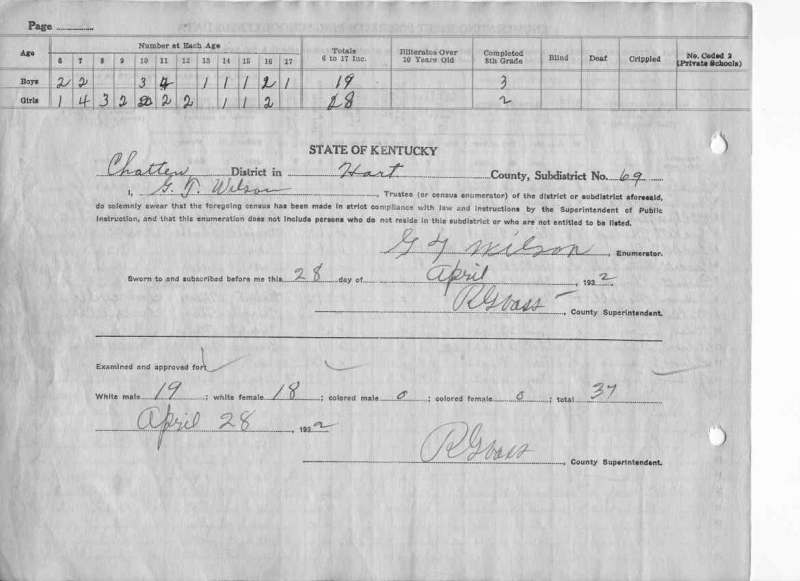 Page
Age Number at Each Age Totals 6 to 17 Inc. Illiterates Over 10 Years Old Completed 8th Grade Blind Deaf Crippled No. Ceded 2 (Private Schools)
6 7 8 9 10 11 12 13 14 15 16 17
Boys 2 2 3 4 1 1 1 2 1 19 3
Girls 1 4 3 2 2 2 2 1 1 2 18 2
STATE OF KENTUCKY
District in Hart County, Subdistrict No. 69
I, G. T. Wilson, Trustee (or census enumerator) of the district or subdistrict aforesaid,
do solemnly swear that the foregoing census has been made in strict compliance with law and instructions by the Superintendent of Public
Instruction, and that this enumeration does not include persons who do not reside in this subdistrict or who are not entitled to be listed.
G T Wilson, Enumerator.
Sworn to and subscribed before me this 28 day of April, 1932
R G Vass, County Superintendent.
Examined and approved for:
White male 19; white female 18; colored male 0; colored female 0; total 37
April 28, 1932
R G Vass, County Superintendent.